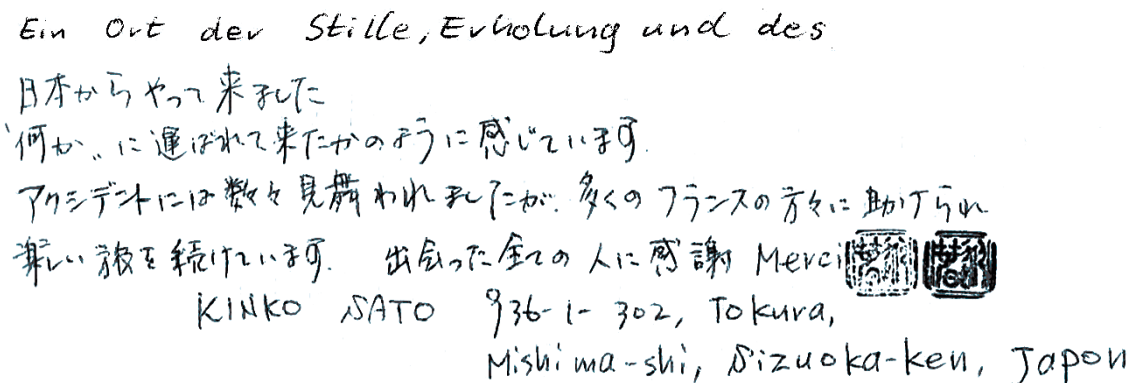 Ein Ort der Stille, Erholung und des
日本からやって来ました
"何か"に運ばれて来たかのように感じています.
アクシデントには数々見舞われましたが、多くのフランスの方々に助けられ
楽しい旅を続けています. 出会った全ての人に感謝 Merci
KINKO SATO 936-1-302, Tokura,
Mishima-shi, Sizuoka-ken, Japon